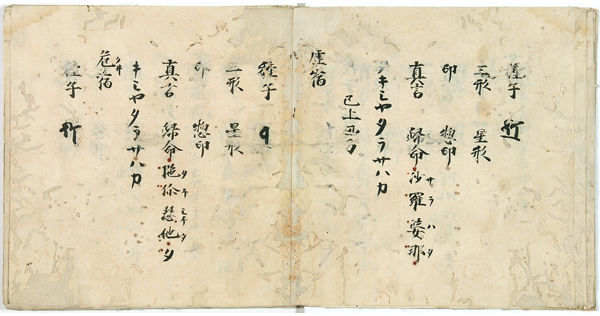 種子
三形 星形
印 惣印
真言 歸命沙羅婆那
ナキシヤタラサハカ
已上丑方
虚宿
種子
三形 星形
印 惣印
真言 歸命
キシヤタラサハカ
危宿
種子